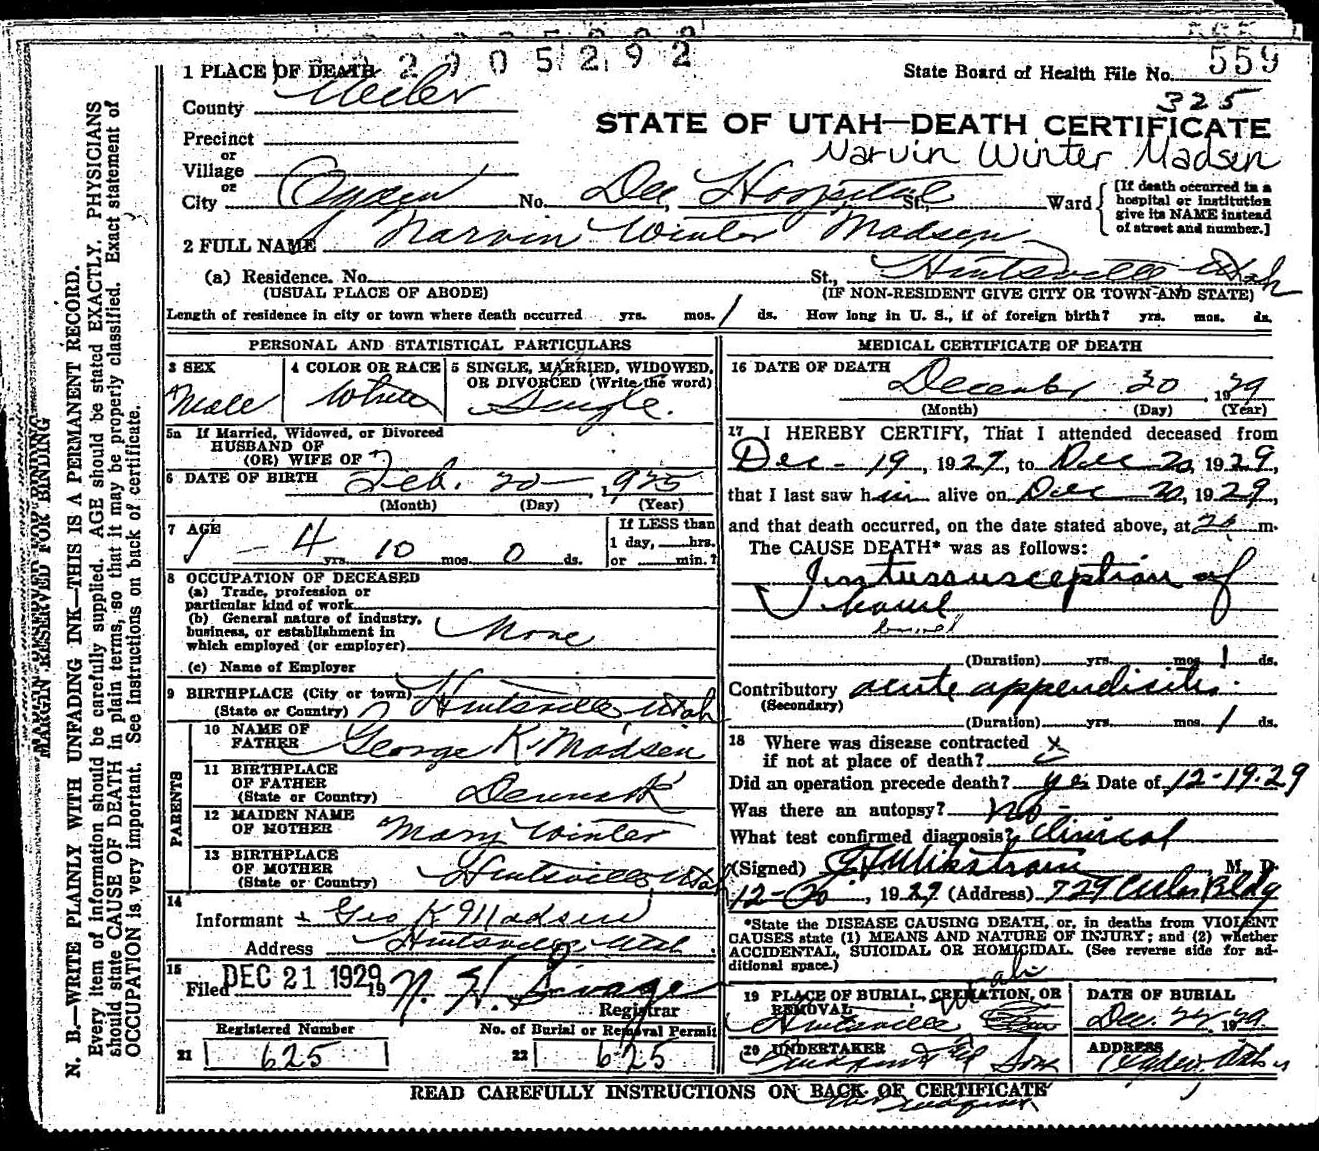 2 9 0 5 2 9 2
559
State Board of Health File No.
325
1 PLACE OF DEATH
County Weber
STATE OF UTAH—DEATH CERTIFICATE
Precinct
or
Narvin Winter Madsen
Village
or
City Ogden No. Dee Hospital St., Ward
[If death occurred in a hospital or institution give its NAME instead of street and number.]
2 FULL NAME Narvin Winter Madsen
(a) Residence. No. St., Huntsville Utah
(USUAL PLACE OF ABODE) (IF NON-RESIDENT GIVE CITY OR TOWN AND STATE)
Length of residence in city or town where death occurred yrs. mos. 1 ds. How long in U. S., if of foreign birth? yrs. mos. ds.
PERSONAL AND STATISTICAL PARTICULARS
3 SEX
Male
4 COLOR OR RACE
White
5 SINGLE, MARRIED, WIDOWED, OR DIVORCED (Write the word)
Single.
5a If Married, Widowed, or Divorced
HUSBAND OF
(OR) WIFE OF
6 DATE OF BIRTH Feb. 20 1925
(Month) (Day) (Year)
7 AGE
4 yrs. 10 mos. 0 ds.
If LESS than
1 day, hrs.
or min.?
8 OCCUPATION OF DECEASED
(a) Trade, profession or
particular kind of work
(b) General nature of industry,
business, or establishment in
which employed (or employer) None
(c) Name of Employer
9 BIRTHPLACE (City or town) Huntsville Utah
(State or Country)
PARENTS
10 NAME OF
FATHER George K. Madsen
11 BIRTHPLACE
OF FATHER
(State or Country) Denmark
12 MAIDEN NAME
OF MOTHER Mary Winter
13 BIRTHPLACE
OF MOTHER
(State or Country) Huntsville, Utah
14
Informant Geo K Madsen
Address Huntsville, Utah
15
Filed DEC 21 1929 19
Registrar
Registered Number No. of Burial or Removal Permit
21 625 22 625
MEDICAL CERTIFICATE OF DEATH
16 DATE OF DEATH
December 20, 1929
(Month) (Day) (Year)
17 I HEREBY CERTIFY, That I attended deceased from
Dec - 19, 1929, to Dec 20, 1929,
that I last saw him alive on Dec 20, 1929,
and that death occurred, on the date stated above, at m.
The CAUSE DEATH* was as follows:
Intussusception of
bowel
bowel
(Duration) yrs. mos. 1 ds.
Contributory acute appendicitis.
(Secondary)
(Duration) yrs. mos. 1 ds.
18 Where was disease contracted
if not at place of death?
Did an operation precede death? yes Date of 12-19-29
Was there an autopsy? no
What test confirmed diagnosis? Clinical
(Signed) M. D.
12-20, 1929 (Address) 729 Bldg
*State the DISEASE CAUSING DEATH, or, in deaths from VIOLENT
CAUSES state (1) MEANS AND NATURE OF INJURY; and (2) whether
ACCIDENTAL, SUICIDAL OR HOMICIDAL. (See reverse side for ad-
ditional space.)
19 PLACE OF BURIAL, CREMATION, OR
REMOVAL
Huntsville Utah
DATE OF BURIAL
Dec. 22 1929
20 UNDERTAKER
Sons
ADDRESS
Ogden, Utah
READ CAREFULLY INSTRUCTIONS ON BACK OF CERTIFICATE
MARGIN RESERVED FOR BINDING
N. B.—WRITE PLAINLY WITH UNFADING INK—THIS IS A PERMANENT RECORD.
Every item of information should be carefully supplied. AGE should be stated EXACTLY. PHYSICIANS
should state CAUSE OF DEATH in plain terms, so that it may be properly classified. Exact statement of
OCCUPATION is very important. See instructions on back of certificate.